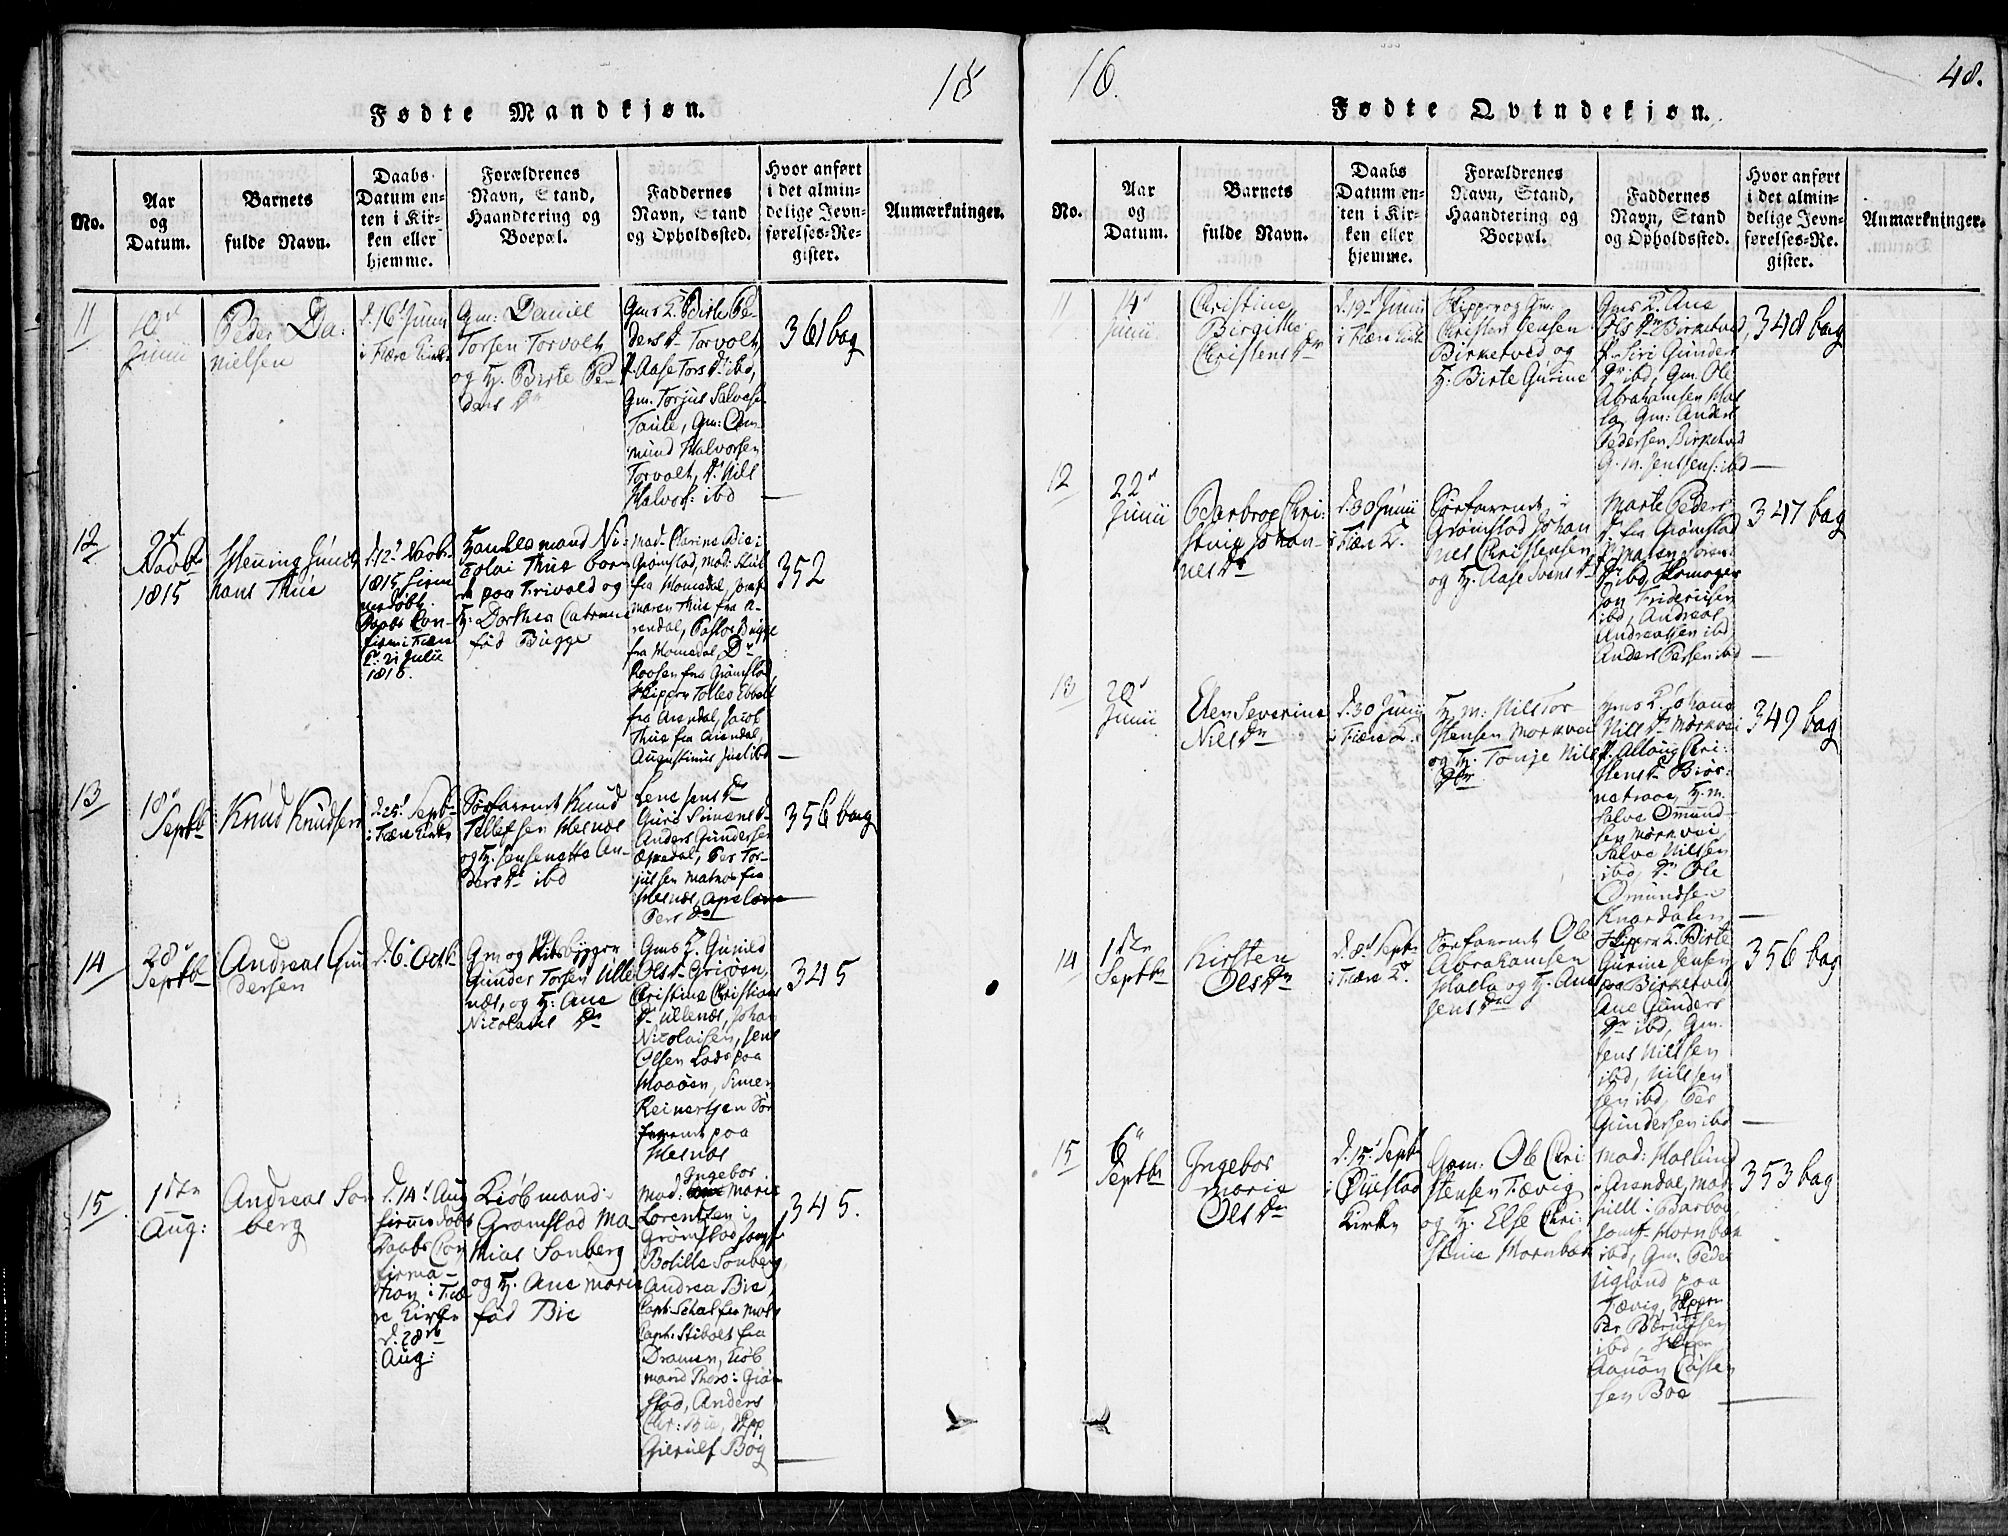 18
Fødte Mandkjøn.
No.
Aar
og
Datum.
Barnets
fulde Navn.
Daabs-
Datum en-
ten i Kir-
ken eller
hjemme.
Forældrenes
Navn, Stand,
Haandtering og
Boepæl.
Faddernes
Navn, Stand
og Opholdssted.
Hvor anført
i det almin-
delige Jevn-
førelses-Re-
gister.
Anmærkninger.
11
Junii
Peder Da:
nielsen
d. 16d Junii
i Fiære Kirke
Gm: Daniel
Torsen Torvolt
og H. Birte Pe-
ders Dr
Gms K. Birte Pe-
ders Dr Torvolt,
P. Aase Tors Dr ibd,
Gm. Torjus Salves
Gm: Om-
mund Halvorsen
Torvolt, Dr Nils
Halvors: ibd
361 bag
12
2d
Novbr
1815
Henning Junc
hans Thue
d. 12d Novbr
1815
Daabs Con-
firm: i Fiære
K. 21 Julii
1816.
Handlesmand Ni-
colai Thue boen
de paa Frivold og
H. Dorthea Catrina
fød Bugge
Mad: Clarine Bie i
Grømstad, Mad:
fra Homedal, Jomf
Maren Thue fra A-
rendal, Pastor Bugge
fra Homedal, Dr
Roosen fra Grømstad
Skipper
fra Arendal, Jacob
Thue fra Arendal,
Augustinus Juel ibd
352
13
18d
Septbr
Knud Knudsen
d. 25d Septbr
i Fiære Kirke
Sørfarende Knud
Tellefsen Hesnæs
og H. Jensenette An-
ders Dr ibd
Lene Jens Dr
Guro Simens D
Anders Gundersen
Per Tor-
julsen Matros fra
Hesnæs,
Pers Dr
356 bag
14
28d
Septbr
Andreas Gun
dersen
d. 6d Octbr
Gm og Skibsbygger
Gunder Torsen Ulle
næs, og H. Ane
Nicolais Dr
Gms K. Gunild
Ols Dr
Christine Christians
Dr Ullenæs, Johan
Nicolaisen, Jens
Olsen Lods paa
Maaøen, Simen
Reinertsen Sør
farende paa
Hesnæs
345
15
1ste
Aug:
Andreas Son
berg
d. 14d Aug
Daabs Con
firma-
tion i Fiæ
re Kirke
d. 28de
Aug:
Kiøbmand i
Grømstad Ma-
thias Sonberg
og H. Ane Marie
fød Bie
Ingebor
Mad: Marie
Lorentsen i
Grømstad Jomf
Bolille Sonberg,
Andrea Bie,
Capt: Stibolt fra
Dramen, Kiøb
mand
stad, Anders
Chr: Bie, Skipp
Gierulf Bog
345.
16.
48.
Fødte Qvindekjøn.
No.
Aar
og
Datum.
Barnets
fulde Navn.
Daabs
Datum en-
ten i Kir-
ken eller
hjemme.
Forældrenes
Navn, Stand,
Haandtering og
Boepæl.
Faddernes
Navn, Stand
og Opholdssted.
Hvor anført
i det almin-
delige Jevn-
førelses-Re.
gister.
Anmærkninger.
11
14d
Junii
Christine
Birgitte
Christens Dr
d. 19d Junii
i Fiære Kirke
Skipper og Gm:
Christen Jensen
Birketved og
H: Birte Gurine
Gms K. Ane
Ols Dr Birketved,
P. Siri Gunders
Dr ibd, Gm. Ole
Abrahamsen Has
la, Gm: Anders
Pedersen Birketved
G. M. Jens Jens: ibd
348 bag
12
22d
Junii
Barbroe Chri:
stine Johan-
nes Dr
d. 30 Junii
i Fiære K.
Sørfarende i
Grømstad Johan
nes Christensen
og H. Aase Svens Dr
Marte Peders
D. fra Grømstad
P. Maren Soren
Dr ibd, Skomager
Jon Fridericksen
ibd, Andreas
Andreassen ibd
Anders Persen ibd
347 bag
13
20d
Junii
Elen Severine
Nils Dr
d. 30 Junii
i Fiære K.
H. M: Nils Tor
stensen Morkvei
og H. Tonje Nils
Dr
Gms K. Johane
Nils Dr Morkvei
P. Allaug Chri-
stens D. Biør-
netraae, H. M.
Salve Omund-
sen Morkvei,
Salve Nilsen
ibd, Dr Ole
Omundsen
Knardalen
349 bag
14
1ste
Septbr
Kirsten
Ols Dr
d. 8d Septbr
i Fiære K.
Sørfarende Ole
Abrahamsen
Hasla og H. Ane
Jens Dr
Skippers K. Birte
Gurine Jensen
paa Birketved,
Ane Gunders
Dr ibd, Gm.
Jens Nilsen
ibd, Nils Jen
sen ibd, Per
Gundersen ibd
356 bag
15
6d
Septbr
Ingebor
Marie
Ols Dr
d. 15d Septbr
i Øiestad
Kirke
Gm: Ole Chri
stensen Fævig
og H. Else Chri-
stine Mornbek
Mad: Haslund
Arendal,
Jomf Mornbek
ibd, Gm. Peder
Ugland paa
Fævig, Skipper
ibd, Skipper
sen Boe
353 bag